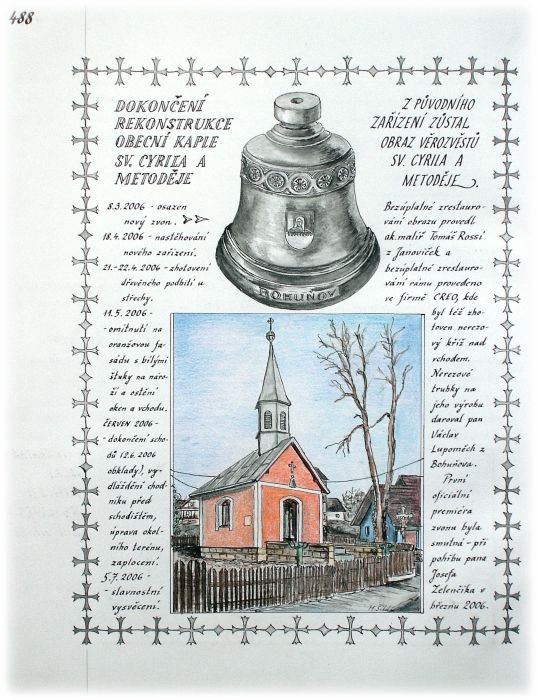 488
DOKONČENÍ
REKONSTRUKCE
OBECNÍ KAPLE
SV. CYRILA A
METODĚJE
8.3.2006 - osazen
nový zvon.
18.4.2006 - nastěhování
nového zařízení.
21.-22.4.2006 - zhotovení
dřevěného podbití u
střechy.
11.5.2006 -
- omítnutí na
oranžovou fa-
sádu s bílými
štuky na náro-
ží a ostění
oken a vchodu.
ČERVEN 2006 -
- dokončení scho-
dů 12.6.2006
obklady), vy-
dláždění chod-
níku před
schodištěm,
úprava okol-
ního terénu,
zaplocení.
5.7.2006 -
- slavnostní
vysvěcení.
BOHUŇOV
Z PŮVODNÍHO
ZAŘÍZENÍ ZŮSTAL
OBRAZ VĚROZVĚSTŮ
SV. CYRILA A
METODĚJE.
Bezúplatné zrestauro-
vání obrazu provedl
ak. malíř Tomáš Rossí
z Janoviček a
bezúplatné zrestauro-
vání rámu provedeno
ve firmě CREO, kde
byl též zho-
toven nerezo-
vý kříž nad
vchodem.
Nerezové
trubky na
jeho výrobu
daroval pan
Václav
Lupoměch z
Bohuňova.
První
oficiální
premiéra
zvonu byla
smutná - při
pohřbu pana
Josefa
Zelenčíka v
březnu 2006.